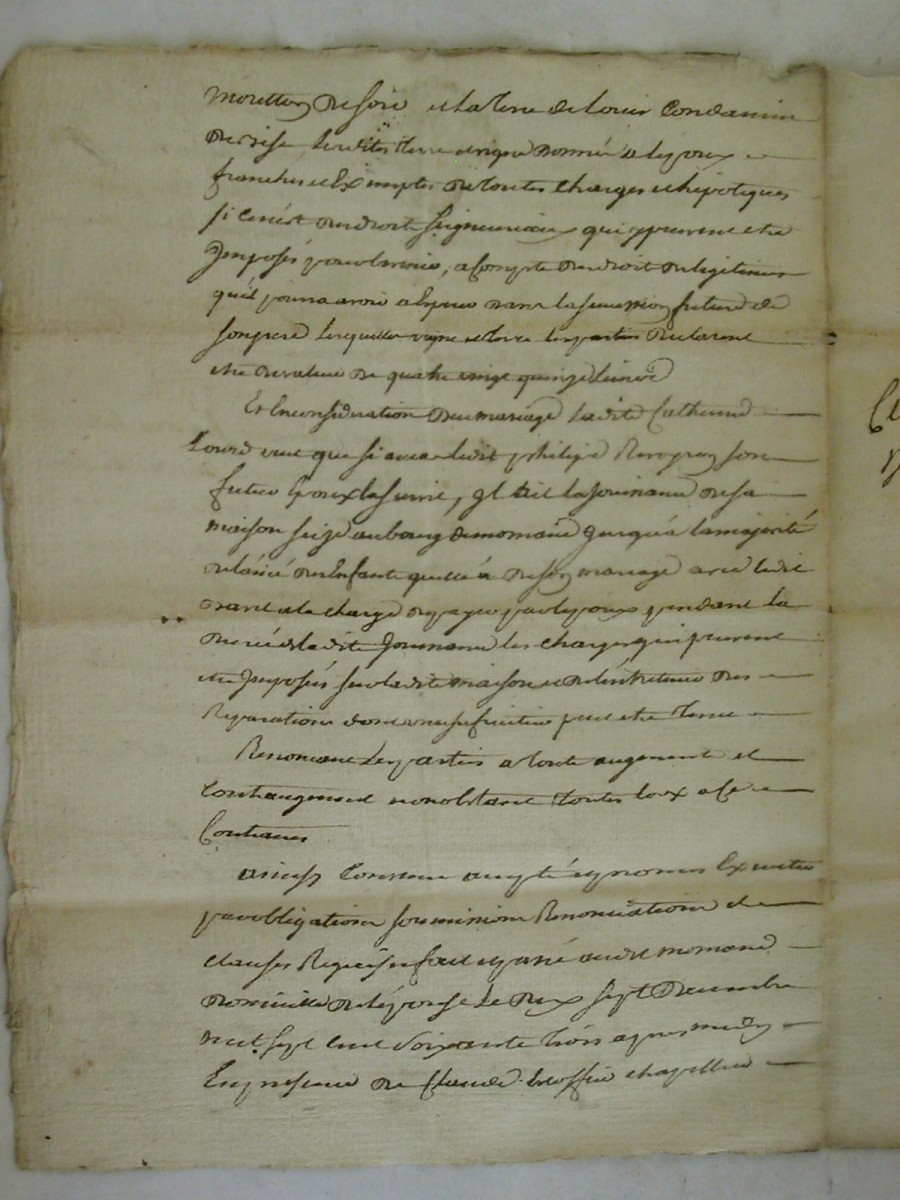 moretton de soir et la terre de Louis Condamin
de bise lesdites terre et vigne donnée a lepoux
franches et Exemptes de toutes charges et hipoteques
si ce nést des droits Seigneuriaux qui y peuvent etre
Imposés pour lavenir, a compte des droit de legitimes
qu'il pourra avoir a Esperer dans la succession future de
son pere lesquelles vigne et terre les parties declarent
etre de valeur de quatre vingt quinze livres
Et En consideration du mariage ladite Catherine
veut que si avec ledit philipe son
futur Epoux la survit, Il ait la Jouissance de sa
maison size au bourg de mornand Jusqu'á la majorité
de lainé des Enfants quelle á de son mariage avec ledit
et a la charge de payer par lepoux pendant la
durée de ladite Jouissance les charges qui peuvent
etre Imposés sur ladite maison et de léntretenir des
Reparations dont un usufruitier peut etre tenu
Renoncant les parties a toute augment et
Contraugment nonobstant toutes loix a ce
Contraires
ainsy Convenu accepté et promis Executer
par obligations soumissions Renonciations et
clauses Requises fait et passé audit mornand
domicille de lépouse le dix sept Decembre
mil sept cent soixante trois apres midy
En presence de Claude chapellier